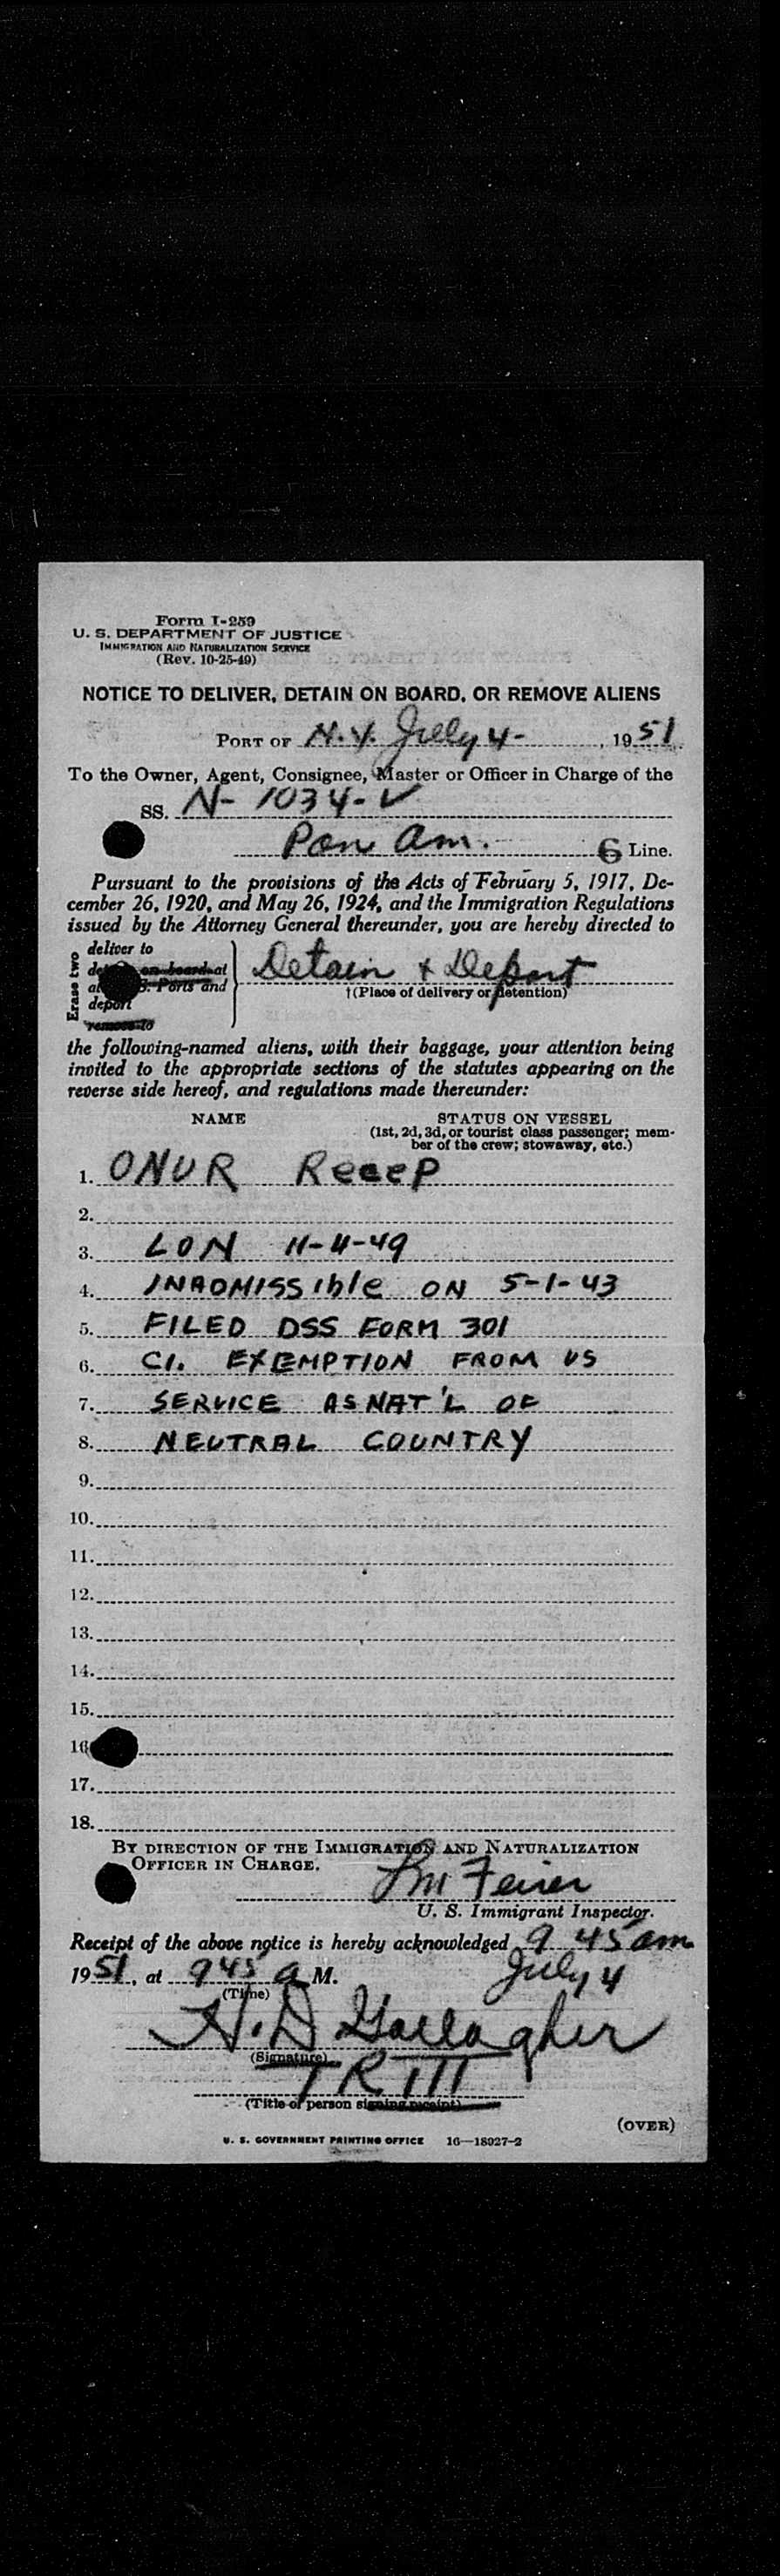 Form I-259
U. S. DEPARTMENT OF JUSTICE
IMMIGRATION AND NATURALIZATION SERVICE
(Rev. 10-25-49)
NOTICE TO DELIVER, DETAIN ON BOARD, OR REMOVE ALIENS
PORT OF N.Y. July 4-, 1951
To the Owner, Agent, Consignee, Master or Officer in Charge of the
SS. N-1034-V
Pan Am. 6 Line.
Pursuant to the provisions of the Acts of February 5, 1917, De-
cember 26, 1920, and May 26, 1924, and the Immigration Regulations
issued by the Attorney General thereunder, you are hereby directed to
Erase two
deliver to
on board at
Ports and
deport
remove to
Detain & Deport
†(Place of delivery or detention)
the following-named aliens, with their baggage, your attention being
invited to the appropriate sections of the statutes appearing on the
reverse side hereof, and regulations made thereunder:
NAME STATUS ON VESSEL
(1st, 2d, 3d, or tourist class passenger; mem-
ber of the crew; stowaway, etc.)
1. ONUR Recep
2.
3. LON 11-4-49
4. INADMISSIble ON 5-1-43
5. FILED DSS FORM 301
6. CI. EXEMPTION FROM US
7. SERVICE AS NAT'L OF
8. NEUTRAL COUNTRY
9.
10.
11.
12.
13.
14.
15.
16
17.
18.
BY DIRECTION OF THE IMMIGRATION AND NATURALIZATION
OFFICER IN CHARGE.
Feirer
U. S. Immigrant Inspector.
Receipt of the above notice is hereby acknowledged 9 45 am
July 4
1951, at 945 a M.
(Time)
H. D Gallagher
(Signature)
TR III
(Title of person signing receipt)
(OVER)
U. S. GOVERNMENT PRINTING OFFICE 16—18027-2